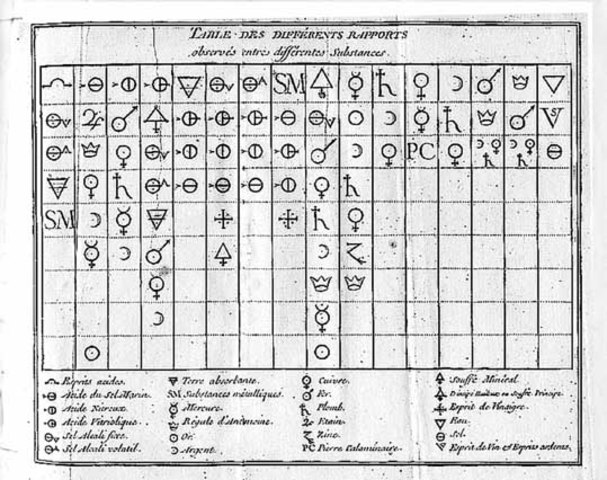 TABLE DES DIFFÉRENTS RAPPORTS
observés entre différentes substances.
SM
SM
PC
Esprits acides.
Acide du Sel Marin.
Acide Nitreux.
Acide Vitriolique.
Sel Alcali fixe.
Sel Alcali volatil.
Terre absorbante.
SM Substances métalliques.
Mercure.
Régule d'Antimoine.
Or.
Argent.
Cuivre.
Fer.
Plomb.
Etain.
Zinc.
PC Pierre Calaminaire.
Souffre Minéral.
Principe huileux ou Souffre Principe.
Esprit de Vinaigre.
Eau.
Sel.
Esprit de Vin et Esprits ardents.